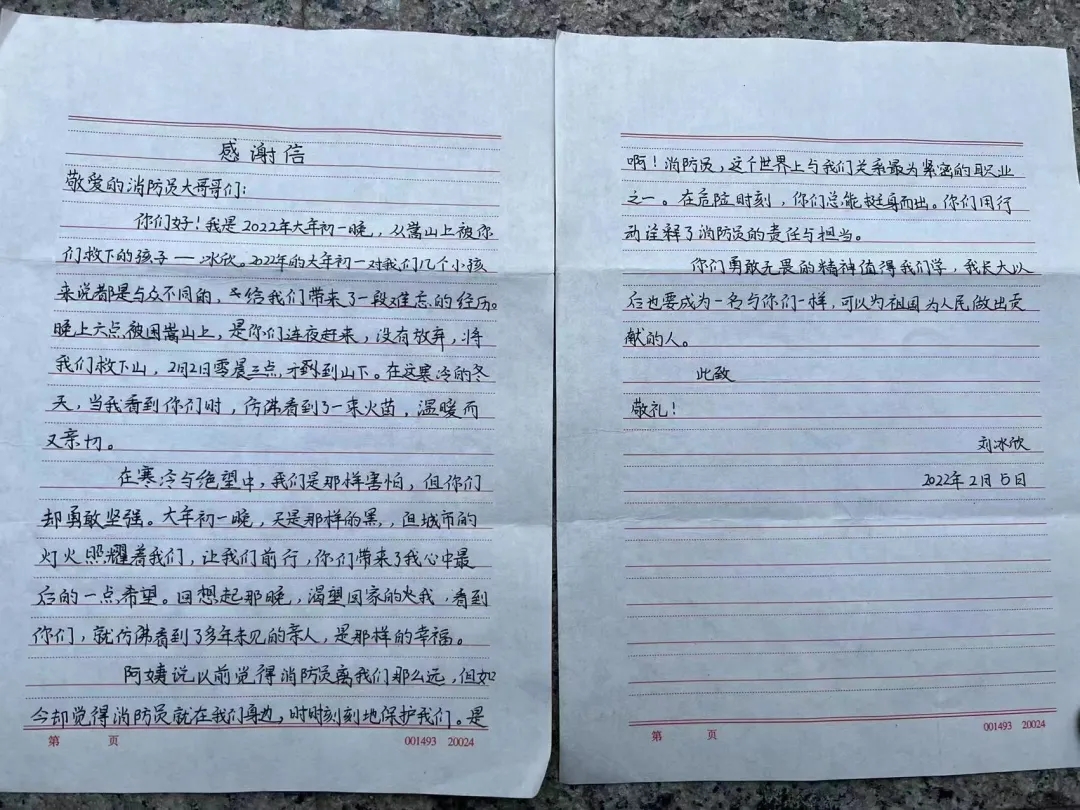 感谢信
敬爱的消防员大哥哥们：
你们好！我是2022年大年初一晚，从嵩山上被你
们救下的孩子——冰欣。2022年的大年初一对我们几个小孩
来说都是与众不同的，给我们带来了一段难忘的经历。
晚上六点被困嵩山上，是你们连夜赶来，没有放弃，将
我们救下山，2月2日零晨三点，才到到山下。在这寒冷的冬
天，当我看到你们时，仿佛看到了一束火苗，温暖而
又亲切。
在寒冷与绝望中，我们是那样害怕，但你们
却勇敢坚强。大年初一晚，天是那样的黑，但城市的
灯火照耀着我们，让我们前行，你们带来了我心中最
后的一点希望。回想起那晚，渴望回家的我，看到
你们，就仿佛看到了多年未见的亲人，是那样的幸福。
阿姨说以前觉得消防员离我们那么远，但如
今却觉得消防员就在我们身边，时时刻刻地保护我们。是
第 页
001493 20024
啊！消防员，这个世界上与我们关系最为紧密的职业
之一。在危险时刻，你们总能挺身而出。你们用行
动诠释了消防员的责任与担当。
你们勇敢无畏的精神值得我们学，我长大以
后也要成为一名与你们一样，可以为祖国为人民做出贡
献的人。
此致
敬礼！
刘冰欣
2022年2月5日
第 页
001493 20024